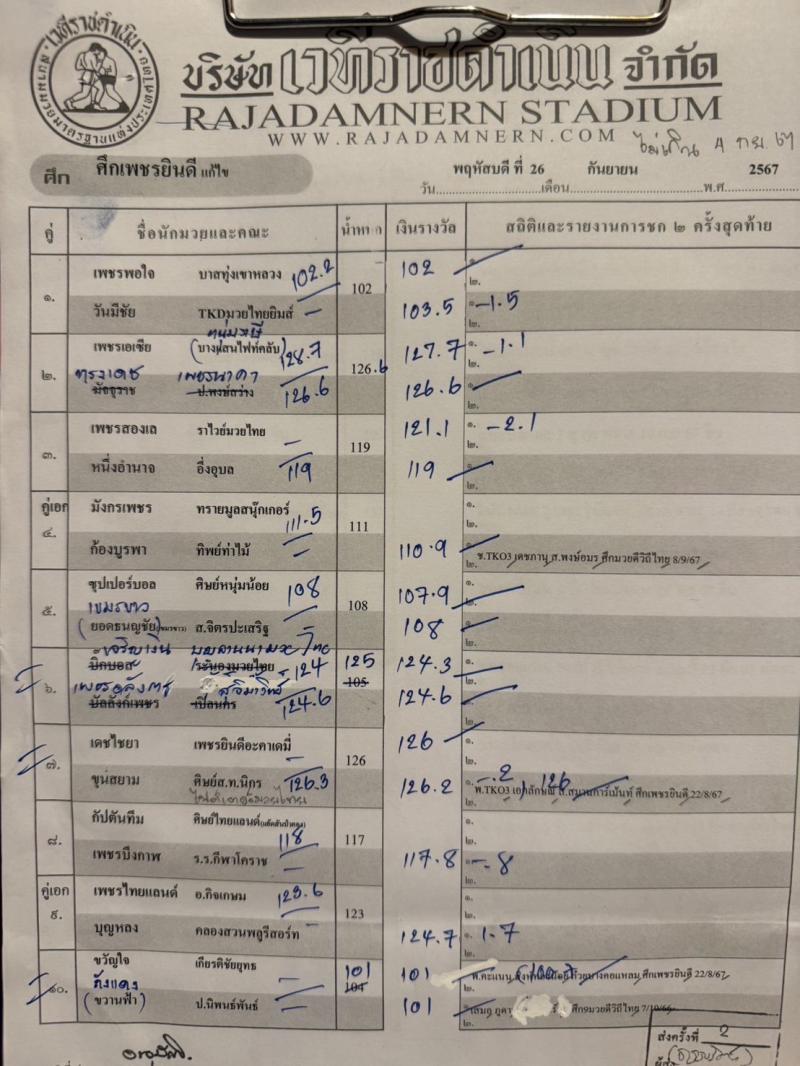 เวทีราชดำเนิน
บริษัท เวทีราชดำเนิน จำกัด
RAJADAMNERN STADIUM
WWW.RAJADAMNERN.COM
ไม่เกิน 4 กย. 67
ศึก ศึกเพชรยินดี แก้ไข
พฤหัสบดี ที่ 26 กันยายน 2567
วัน เดือน พ.ศ.
คู่ ชื่อนักมวยและคณะ น้ำหนัก เงินรางวัล สถิติและรายงานการชก ๒ ครั้งสุดท้าย
๑. เพชรพอใจ บาสทุ่งเขาหลวง 102.2 102 102 ๑. ๒.
วันมีชัย TKDมวยไทยยิมส์ – 103.5 ๑. -1.5 ๒.
หนุ่มวารี
๒. เพชรเอเชีย (บางแสนไฟท์คลับ) 128.7 126.6 127.7 ๑. -1.1 ๒.
ทรงเดช เพชรนาคา 126.6 126.6 ๑. ๒.
มัจจุราช ป.พงษ์สว่าง
๓. เพชรสองเล ราไวย์มวยไทย – 119 121.1 ๑. -2.1 ๒.
หนึ่งอำนาจ อึ่งอุบล 119 119 ๑. ๒.
คู่เอก ๔. มังกรเพชร ทรายมูลสนุ๊กเกอร์ 111.5 111 ๑. ๒.
ก้องบูรพา ทิพย์ท่าไม้ – 110.9 ๑. ๒. ช.TKO3 เดชภานุ ส.พงษ์อมร ศึกมวยดีวิถีไทย 8/9/67
๕. ซุปเปอร์บอล ศิษย์หนุ่มน้อย 108 108 107.9 ๑. ๒.
เขมรขาว
(ยอดธนญชัย) ส.จิตรปะเสริฐ 108 ๑. ๒.
เจริญเงิน มวยไทย
๖. บิ๊กบอส ระนองมวยไทย 124 125 105 124.3 ๑. ๒.
บัลลังก์เพชร เปิลนคร 124.6 124.6 ๑. ๒.
๗. เดชไชยา เพชรยินดีอะคาเดมี่ – 126 126 ๑. ๒.
ขุนสยาม ศิษย์ส.ท.นิกร 126.3 126.2 ๑. -.2 126 ๒. พ.TKO3 ศึกเพชรยินดี 22/8/67
๘. กัปตันทีม ศิษย์ไทยแลนด์ 118 117 ๑. ๒.
เพชรบึงกาฬ ร.ร.กีฬาโคราช – 117.8 ๑. -.8 ๒.
คู่เอก ๙. เพชรไทยแลนด์ อ.กิจเกษม 123.6 123 ๑. ๒.
บุญหลง คลองสวนพลูรีสอร์ท – 124.7 ๑. 1.7 ๒.
๑๐. ขวัญใจ เกียรติชัยยุทธ – 101 104 101 พ.คะแนน ศึกเพชรยินดี 22/8/67
กังแดง
(ขวานฟ้า) ป.นิพนธ์พันธ์ – 101 ศึกมวยดีวิถีไทย
ส่งครั้งที่ 2